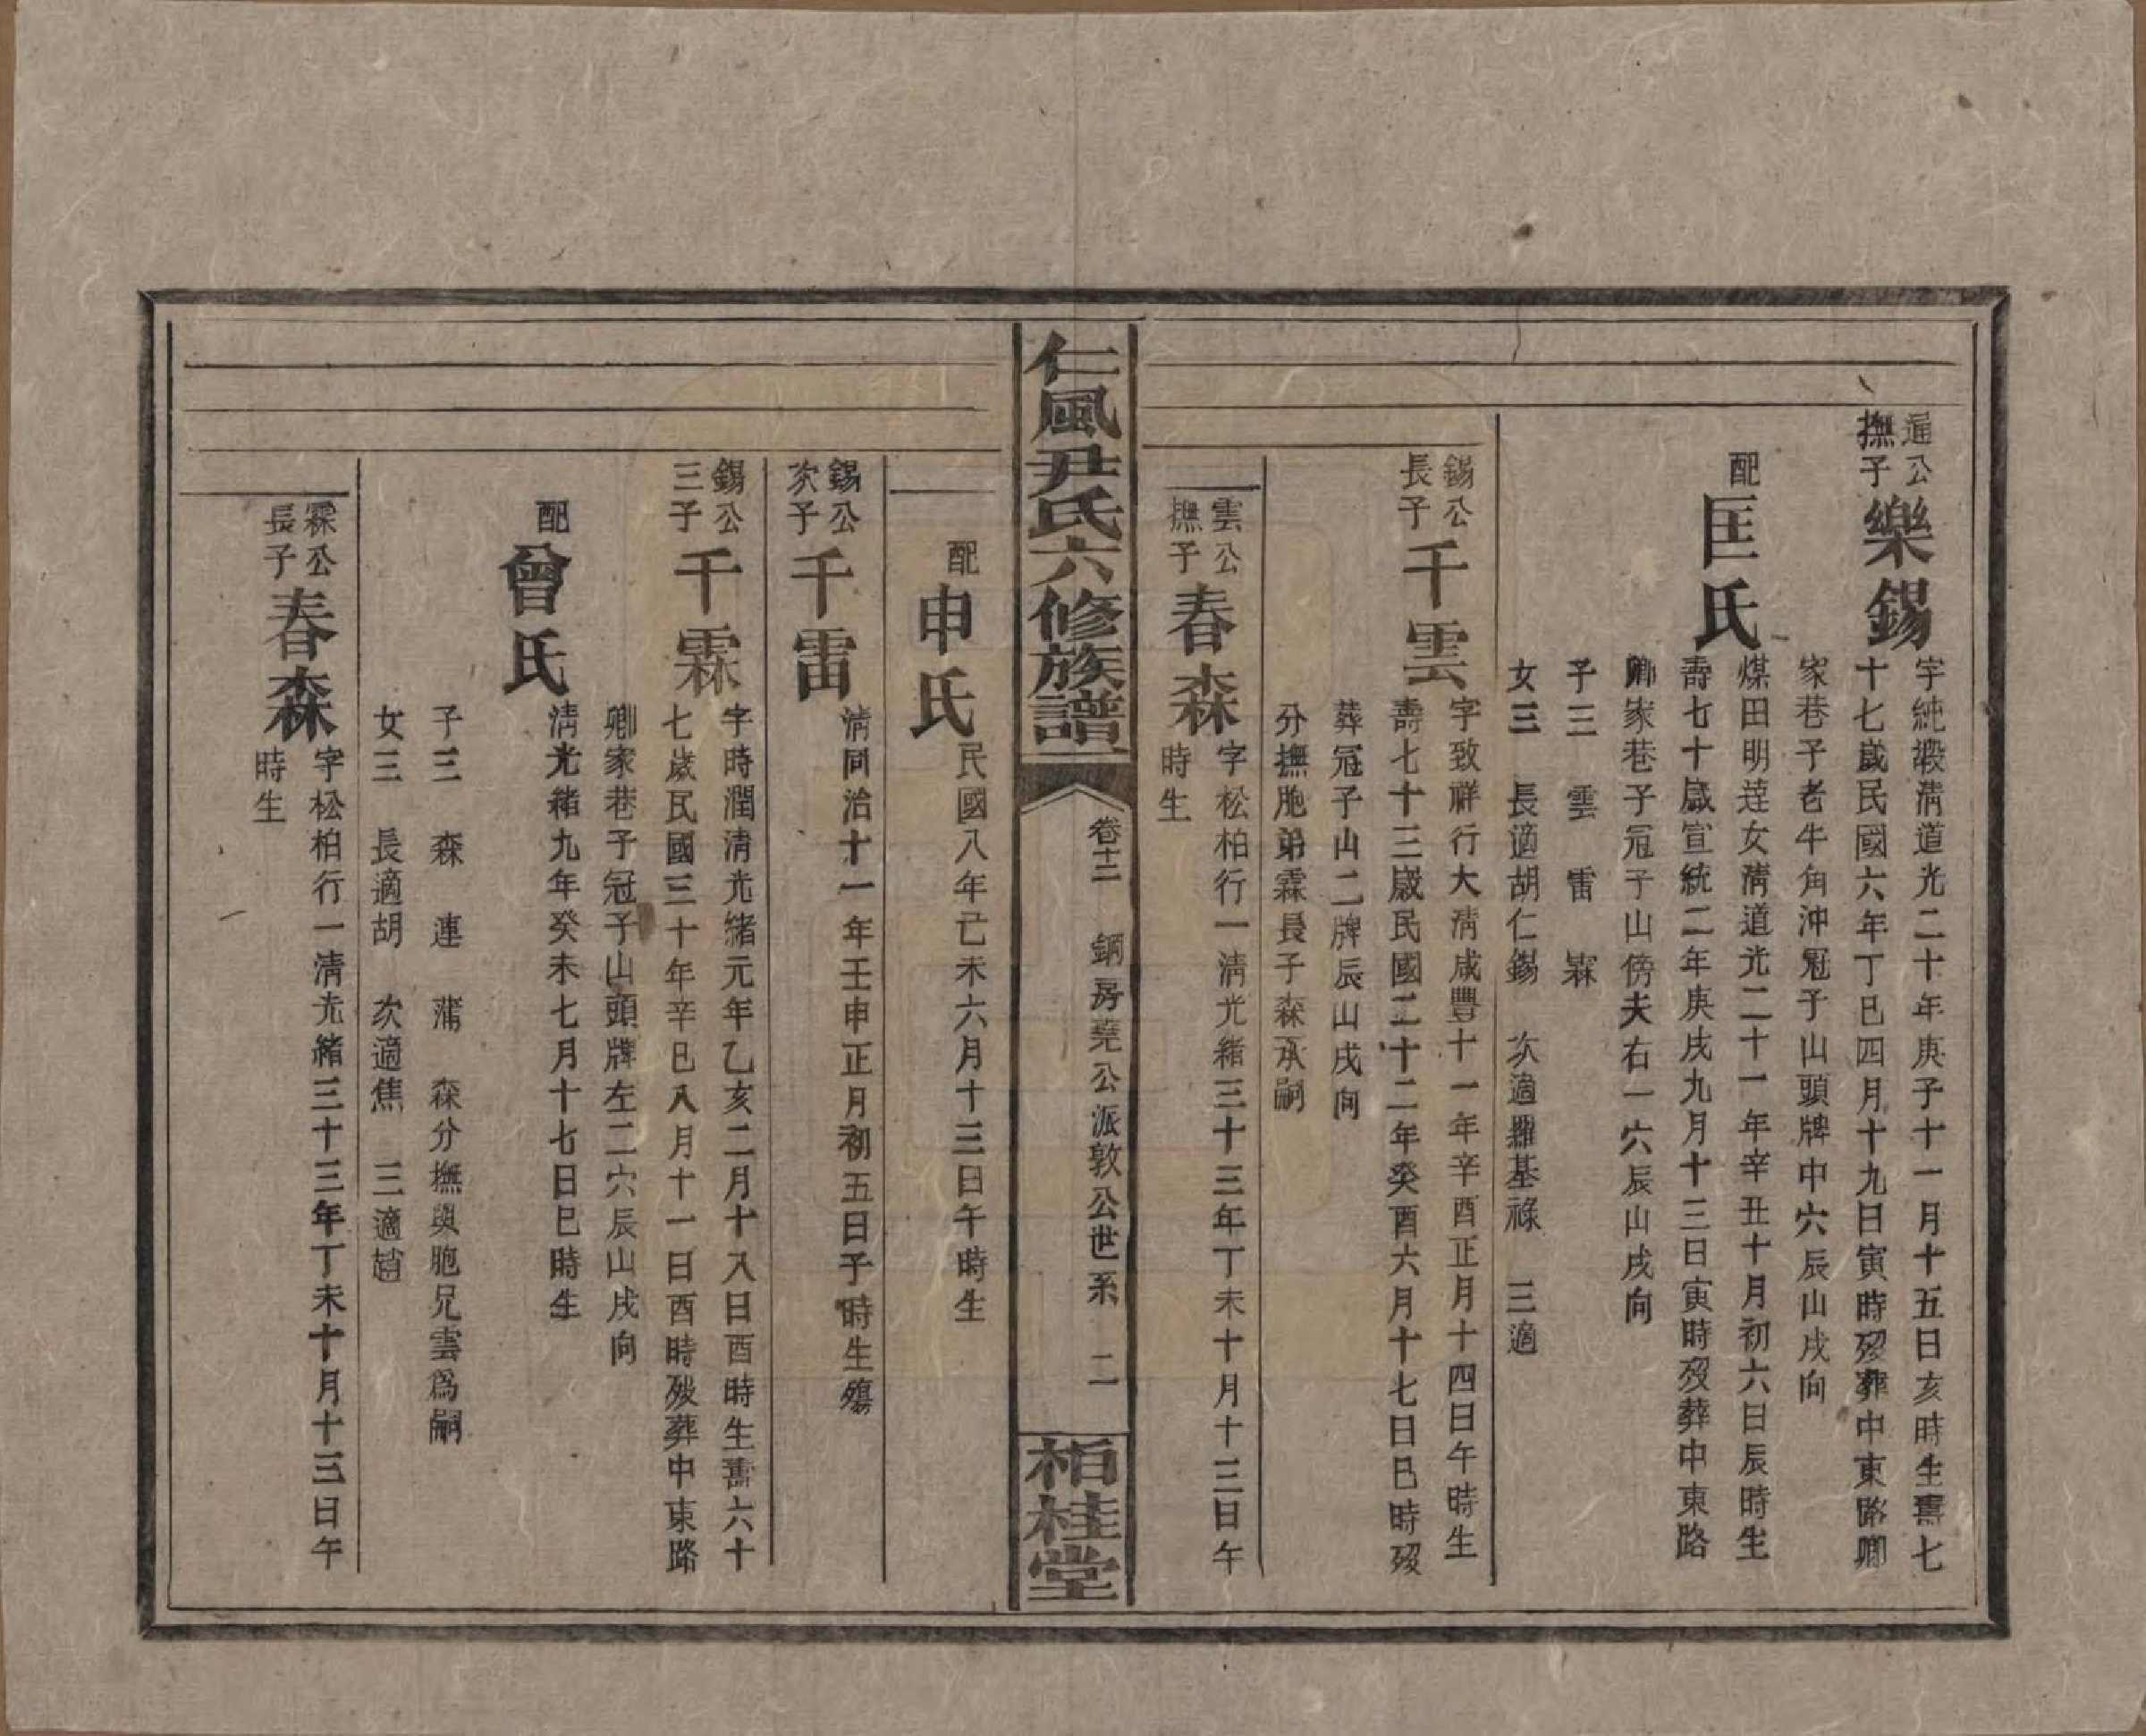 遍公
撫子
樂錫
字純嘏清道光二十年庚子十一月十五日亥時生壽七
十七歲民國六年丁巳四月十九日寅時歿葬中東路卿
家巷子老牛角沖冠子山頭牌中穴辰山戌向
配
匡氏
煤田明達女清道光二十一年辛丑十月初六日辰時生
壽七十歲宣統二年庚戌九月十三日寅時歿葬中東路
卿家巷子冠子山傍夫右一穴辰山戌向
子三 雲 雷 霖
女三 長適胡仁錫 次適羅基祿 三適
錫公
長子
千雲
字致祥行大清咸豐十一年辛酉正月十四日午時生
壽七十三歲民國二十二年癸酉六月十七日巳時歿
葬冠子山二牌辰山戌向
分撫胞弟霖長子森承嗣
雲公
撫子
春森
字松柏行一清光緒三十三年丁未十月十三日午
時生
仁風尹氏六修族譜
卷十二 鋼房堯公派敦公世系 二
栢桂堂
配
申氏
民國八年己未六月十三日午時生
錫公
次子
千雷
清同治十一年壬申正月初五日子時生殤
錫公
三子
千霖
字時潤清光緒元年乙亥二月十八日酉時生壽六十
七歲民國三十年辛巳八月十一日酉時歿葬中東路
卿家巷子冠子山頭牌左二穴辰山戌向
配
曾氏
清光緒九年癸未七月十七日巳時生
子三 森 連 蒲 森分撫與胞兄雲爲嗣
女三 長適胡 次適焦 三適趙
霖公
長子
春森
字松柏行一清光緒三十三年丁未十月十三日午
時生